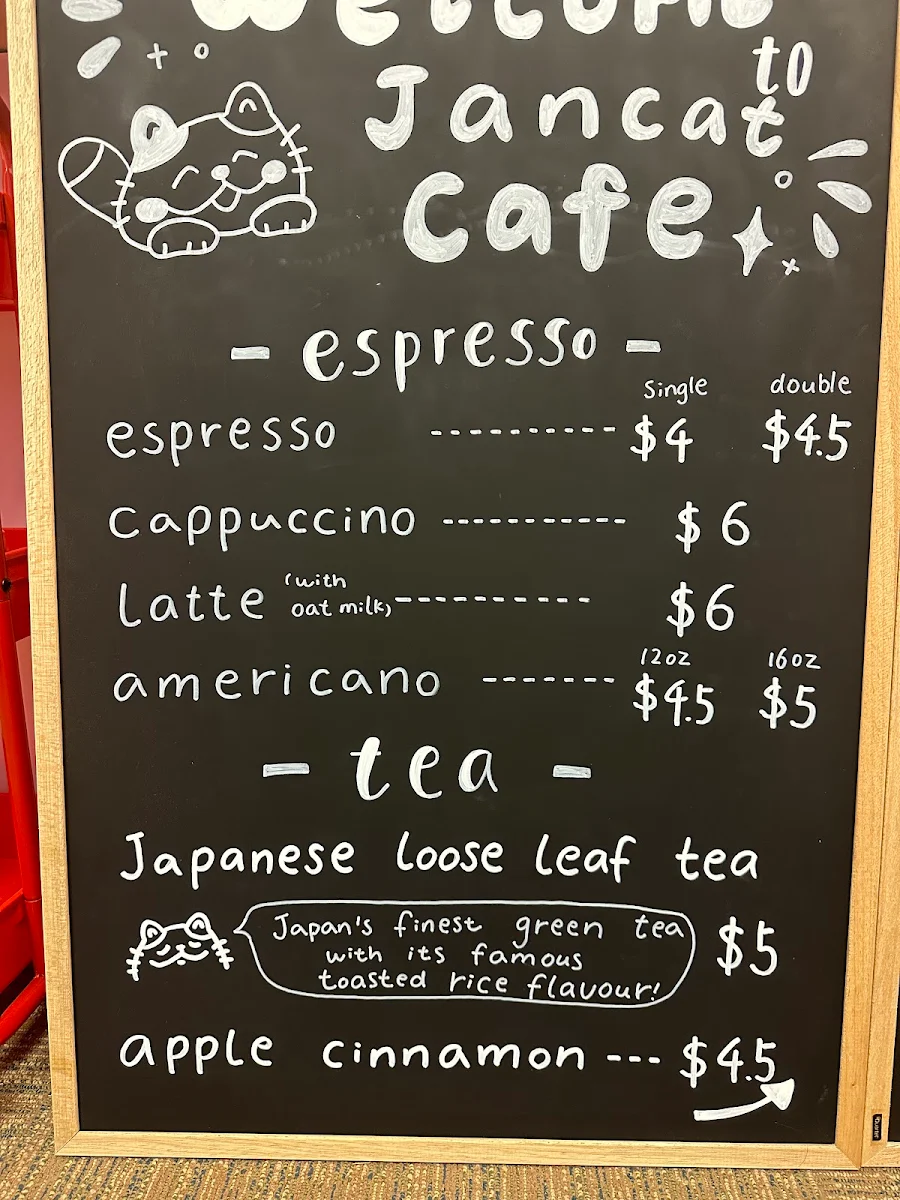 Welcome
to
Jancat
Cafe
- espresso -
single double
espresso ---------- $4 $4.5
cappuccino ----------- $6
latte (with oat milk) ---------- $6
12oz 16oz
americano ------- $4.5 $5
- tea -
Japanese loose leaf tea
Japan's finest green tea
with its famous $5
toasted rice flavour!
apple cinnamon --- $4.5